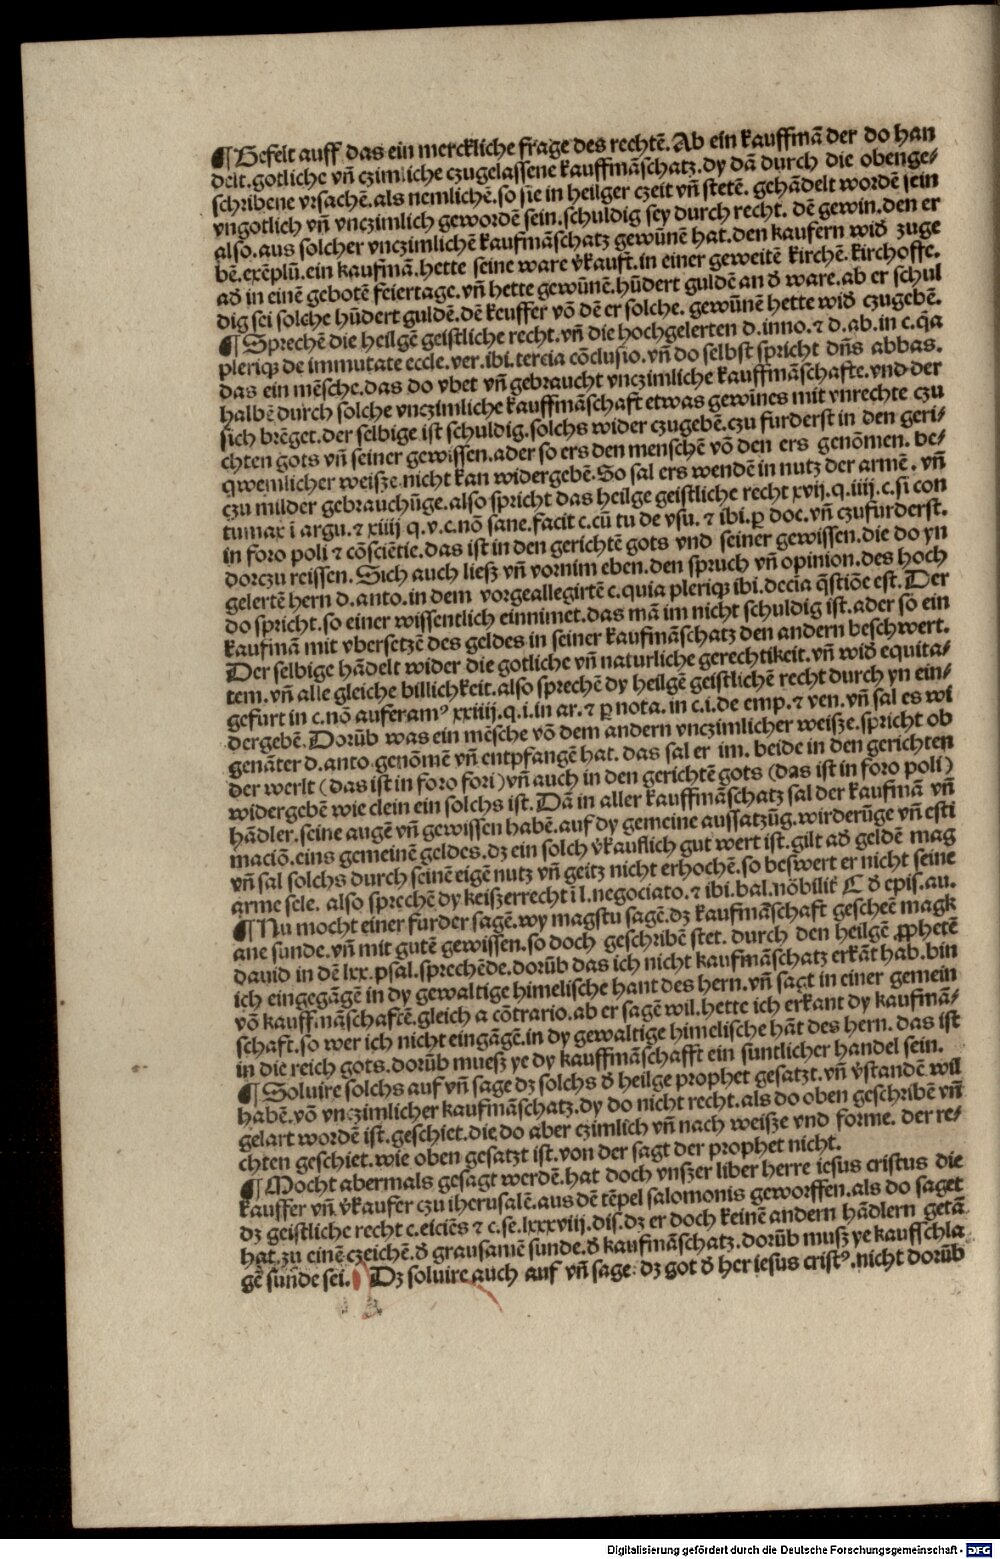 ¶ Gefelt auff das ein merckliche frage des rechtē. Ab ein kauffmā der do han
delt. gotliche vñ czimliche czugelassene kauffmāschatz. dy dā durch die obenge⸗
schribene vrsachē. als nemlichē. so sie in heilger czeit vñ stetē. gehādelt wordē sein
vngotlich vñ vnczimlich gewordē sein. schuldig sey durch recht. dē gewin. den er
also. aus solcher vnczimlichē kaufmāschatz gewūnē hat. den kaufern wid̕ zuge
bē. exēplū. ein kaufmā. hette seine ware v̕kauft. in einer geweitē kirchē. kirchoffe.
ad̕ in einē gebotē feiertage. vñ hette gewūnē. hūdert guldē an d̕ ware. ab er schul
dig sei solche hūdert guldē. dē keuffer vō dē er solche. gewūnē hette wid̕ czugebē.
¶ Sprechē die heilgē geistliche recht. vñ die hochgelerten d. inno. ⁊ d. ab. in c. q̄a
pleriqꝫ de immutate eccle. ver. ibi. tercia cōclusio. vñ do selbst spricht dn̄s abbas.
das ein mēsche. das do vbet vñ gebraucht vnczimliche kauffmāschafte. vnd der
halbē durch solche vnczimliche kauffmāschaft etwas gewines mit vnrechte czu
sich brēget. der selbige ist schuldig. solchs wider czugebē. czu furderst in den geri⸗
chten gots vñ seiner gewissen. ader so ers den menschē vō den ers genōmen. be⸗
qwemlicher weisze nicht kan widergebē. So sal ers wendē in nutz der armē. vñ
czu milder gebrauchūge. also spricht das heilge geistliche recht xvij. q. iiij. c. si con
tumax ī argu. ⁊ xiiij q. v. c. nō sane. facit c. cū tu de vsu. ⁊ ibi. ꝑ doc. vñ czufurderst.
in foro poli ⁊ cōsciētie. das ist in den gerichtē gots vnd seiner gewissen. die do yn
dorczu reissen. Sich auch liesz vñ vornim eben. den spruch vñ opinion. des hoch
gelertē hern d. anto. in dem vorgeallegirtē c. quia pleriqꝫ ibi. decia q̄stiōe est. Der
do spricht. so einer wissentlich einnimet. das mā im nicht schuldig ist. ader so ein
kaufmā mit vbersetzē des geldes in seiner kaufmāschatz den andern beschwert.
Der selbige hādelt wider die gotliche vñ naturliche gerechtikeit. vñ wid̕ equita⸗
tem. vñ alle gleiche billichkeit. also sprechē dy heilgē geistlichē recht durch yn ein⸗
gefurt in c. nō auferamꝰ xxiiij. q. i. in ar. ⁊ ꝑ nota. in c. i. de emp. ⁊ ven. vñ sal es wi
dergebē. Dorūb was ein mēsche vō dem andern vnczimlicher weisze. spricht ob
genāter d. anto genōmē vñ entpfangē hat. das sal er im. beide in den gerichten
der werlt (das ist in foro fori) vñ auch in den gerichtē gots (das ist in foro poli)
widergebē wie clein ein solchs ist. Dā in aller kauffmāschatz sal der kaufmā vñ
hādler. seine augē vñ gewissen habē. auf dy gemeine aussatzūg. wirderūge vñ esti
maciō. eins gemeinē geldes. dꝫ ein solch v̕kauflich gut wert ist. gilt ad̕ geldē mag
vñ sal solchs durch seinē eigē nutz vñ geitz nicht erhochē. so beswert er nicht seine
arme sele. also sprechē dy keiszerrecht ī l. negociato. ⁊ ibi. bal. nōbilit̕ C d̕ epis. au.
¶ Nu mocht einer furder sagē. wy magstu sagē. dꝫ kaufmāschaft gescheē magk
ane sunde. vñ mit gutē gewissen. so doch geschribē stet. durch den heilgē ꝓphetē
dauid in dē lxx. psal. sprechēde. dorūb das ich nicht kaufmāschatz erkāt hab. bin
ich eingegāgē in dy gewaltige himelische hant des hern. vñ sagt in einer gemein
vō kauffmāschaftē. gleich a cōtrario. ab er sagē wil. hette ich erkant dy kaufmā⸗
schaft. so wer ich nicht eingāgē. in dy gewaltige himelische hāt des hern. das ist
in die reich gots. dorūb muesz ye dy kauffmāschafft ein suntlicher handel sein.
¶ Soluire solchs auf vñ sage dꝫ solchs d̕ heilge prophet gesatzt. vñ v̕standē wil
habē. vō vnczimlicher kaufmāschatz. dy do nicht recht. als do oben geschribē vñ
gelart wordē ist. geschiet. die do aber czimlich vñ nach weisze vnd forme. der re⸗
chten geschiet. wie oben gesatzt ist. von der sagt der prophet nicht.
¶ Mocht abermals gesagt werdē. hat doch vnszer liber herre iesus cristus die
kauffer vñ v̕kaufer czu iherusalē. aus dē tēpel salomonis geworffen. als do saget
dꝫ geistliche recht c. eiciēs ⁊ c. se. lxxxviij. dis. dꝫ er doch keinē andern hādlern getā
hat. zu einē czeichē. d̕ grausamē sunde. d̕ kaufmāschatz. dorūb musz ye kaufschla
gē sunde sei. Dꝫ soluire auch auf vñ sage. dꝫ got d̕ her iesus cristꝰ. nicht dorūb
Digitalisierung gefördert durch die Deutsche Forschungsgemeinschaft - DFG